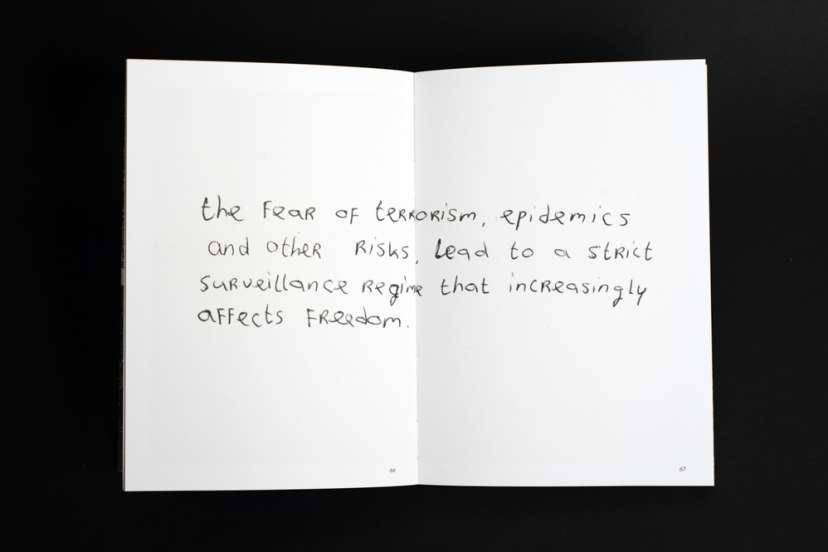 the fear of terrorism, epidemics
and other risks, lead to a strict
surveillance regime that increasingly
affects freedom.
66 67